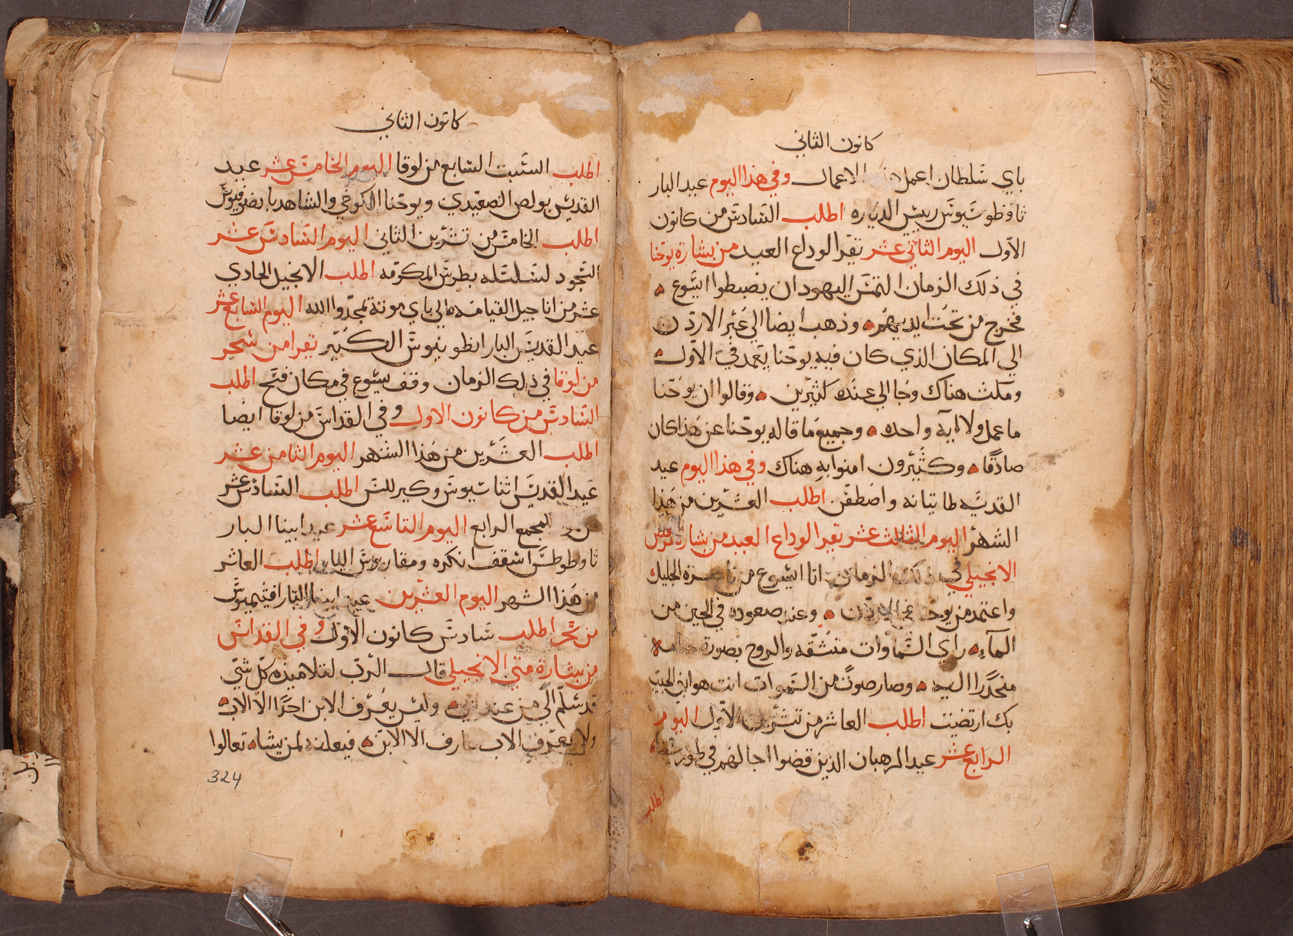 كانون الثاني
باي سلطان اعمل هذه الاعمال وفي هذا اليوم عيد البار
ثاوضوسيوس ريس الدياره اطلب السادس من كانون
الاول اليوم الثاني عشر تقرا لوداع العيد من بشارة يوحنا
في ذلك الزمان التمس اليهود ان يضبطوا ايسوع
فخرج من تحت ايديهم وذهب ايضا الى عبر الاردن
الى المكان الذي كان فيه يوحنا يعمد في الاول
ومكث هناك وجا الى عنده كثيرين وقالوا ان يوحنا
ما عمل ولا اية واحده وجميع ما قاله يوحنا عن هذا كان
صادقا وكثيرون امنوا به هناك وفي هذا اليوم عيد
القديسه طاتيانه واصطفن اطلب العشرين من هذا
الشهر اليوم الثالث عشر تقرا لوداع العيد من بشارة مرقس
الانجيلي في ذلك الزمان اتا ايسوع من ناصرة الجليل
واعتمد من يوحنا في الاردن وعند صعوده في الحين من
المآء راى السماوات منشقه والروح بصورة حمامه
منحدرا اليه وصار صوت من السموات انت هو ابني الحبيب
بك ارتضيت اطلب العاشر من تشرين الاول اليوم
الرابع عشر عيد الرهبان الذين قضوا اجالهم في طور سينا
اطلب
كانون الثاني
اطلب السبت السابع من لوقا اليوم الخامس عشر عيد
القديس بولص الصعيدي ويوحنا الكوخي والشاهد
اطلب الخامس من تشرين الثاني اليوم السادس عشر
السجود لسلسلة بطرس المكرمه اطلب الانجيل الحادي
عشر من اناجيل القيامه الى باي موتة يمجدوا الله اليوم السابع عشر
عيد القديس البار انطونيوس الكبير تقرا من سحر
من لوقا في ذلك الزمان وقف يسوع في مكان فتح اطلب
السادس من كانون الاول وفي القداس من لوقا ايضا
اطلب العشرين من هذا الشهر اليوم الثامن عشر
عيد القديس اثناسيوس وكيرللس اطلب السادس عشر
من المجمع الرابع اليوم التاسع عشر عيد ابينا البار
ثاوطوطس اسقف انكره ومقاريوس البار اطلب العاشر
من هذا الشهر اليوم العشرين عيد ابينا البار افتيميوس
من سحر اطلب سادس كانون الاول وفي القداس
من بشارة متى الانجيلي قال الرب لتلاميذه كل شي
قد سلم الي من عند ابي وليس يعرف الابن احدا الا الاب
ولا يعرف الاب عارف الا الابن فيعلنه لمن يشاه تعالوا
324